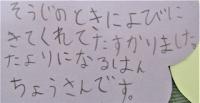 そうじのときによびに
きてくれてたすかりました。
たよりになるはん
ちょうさんです。